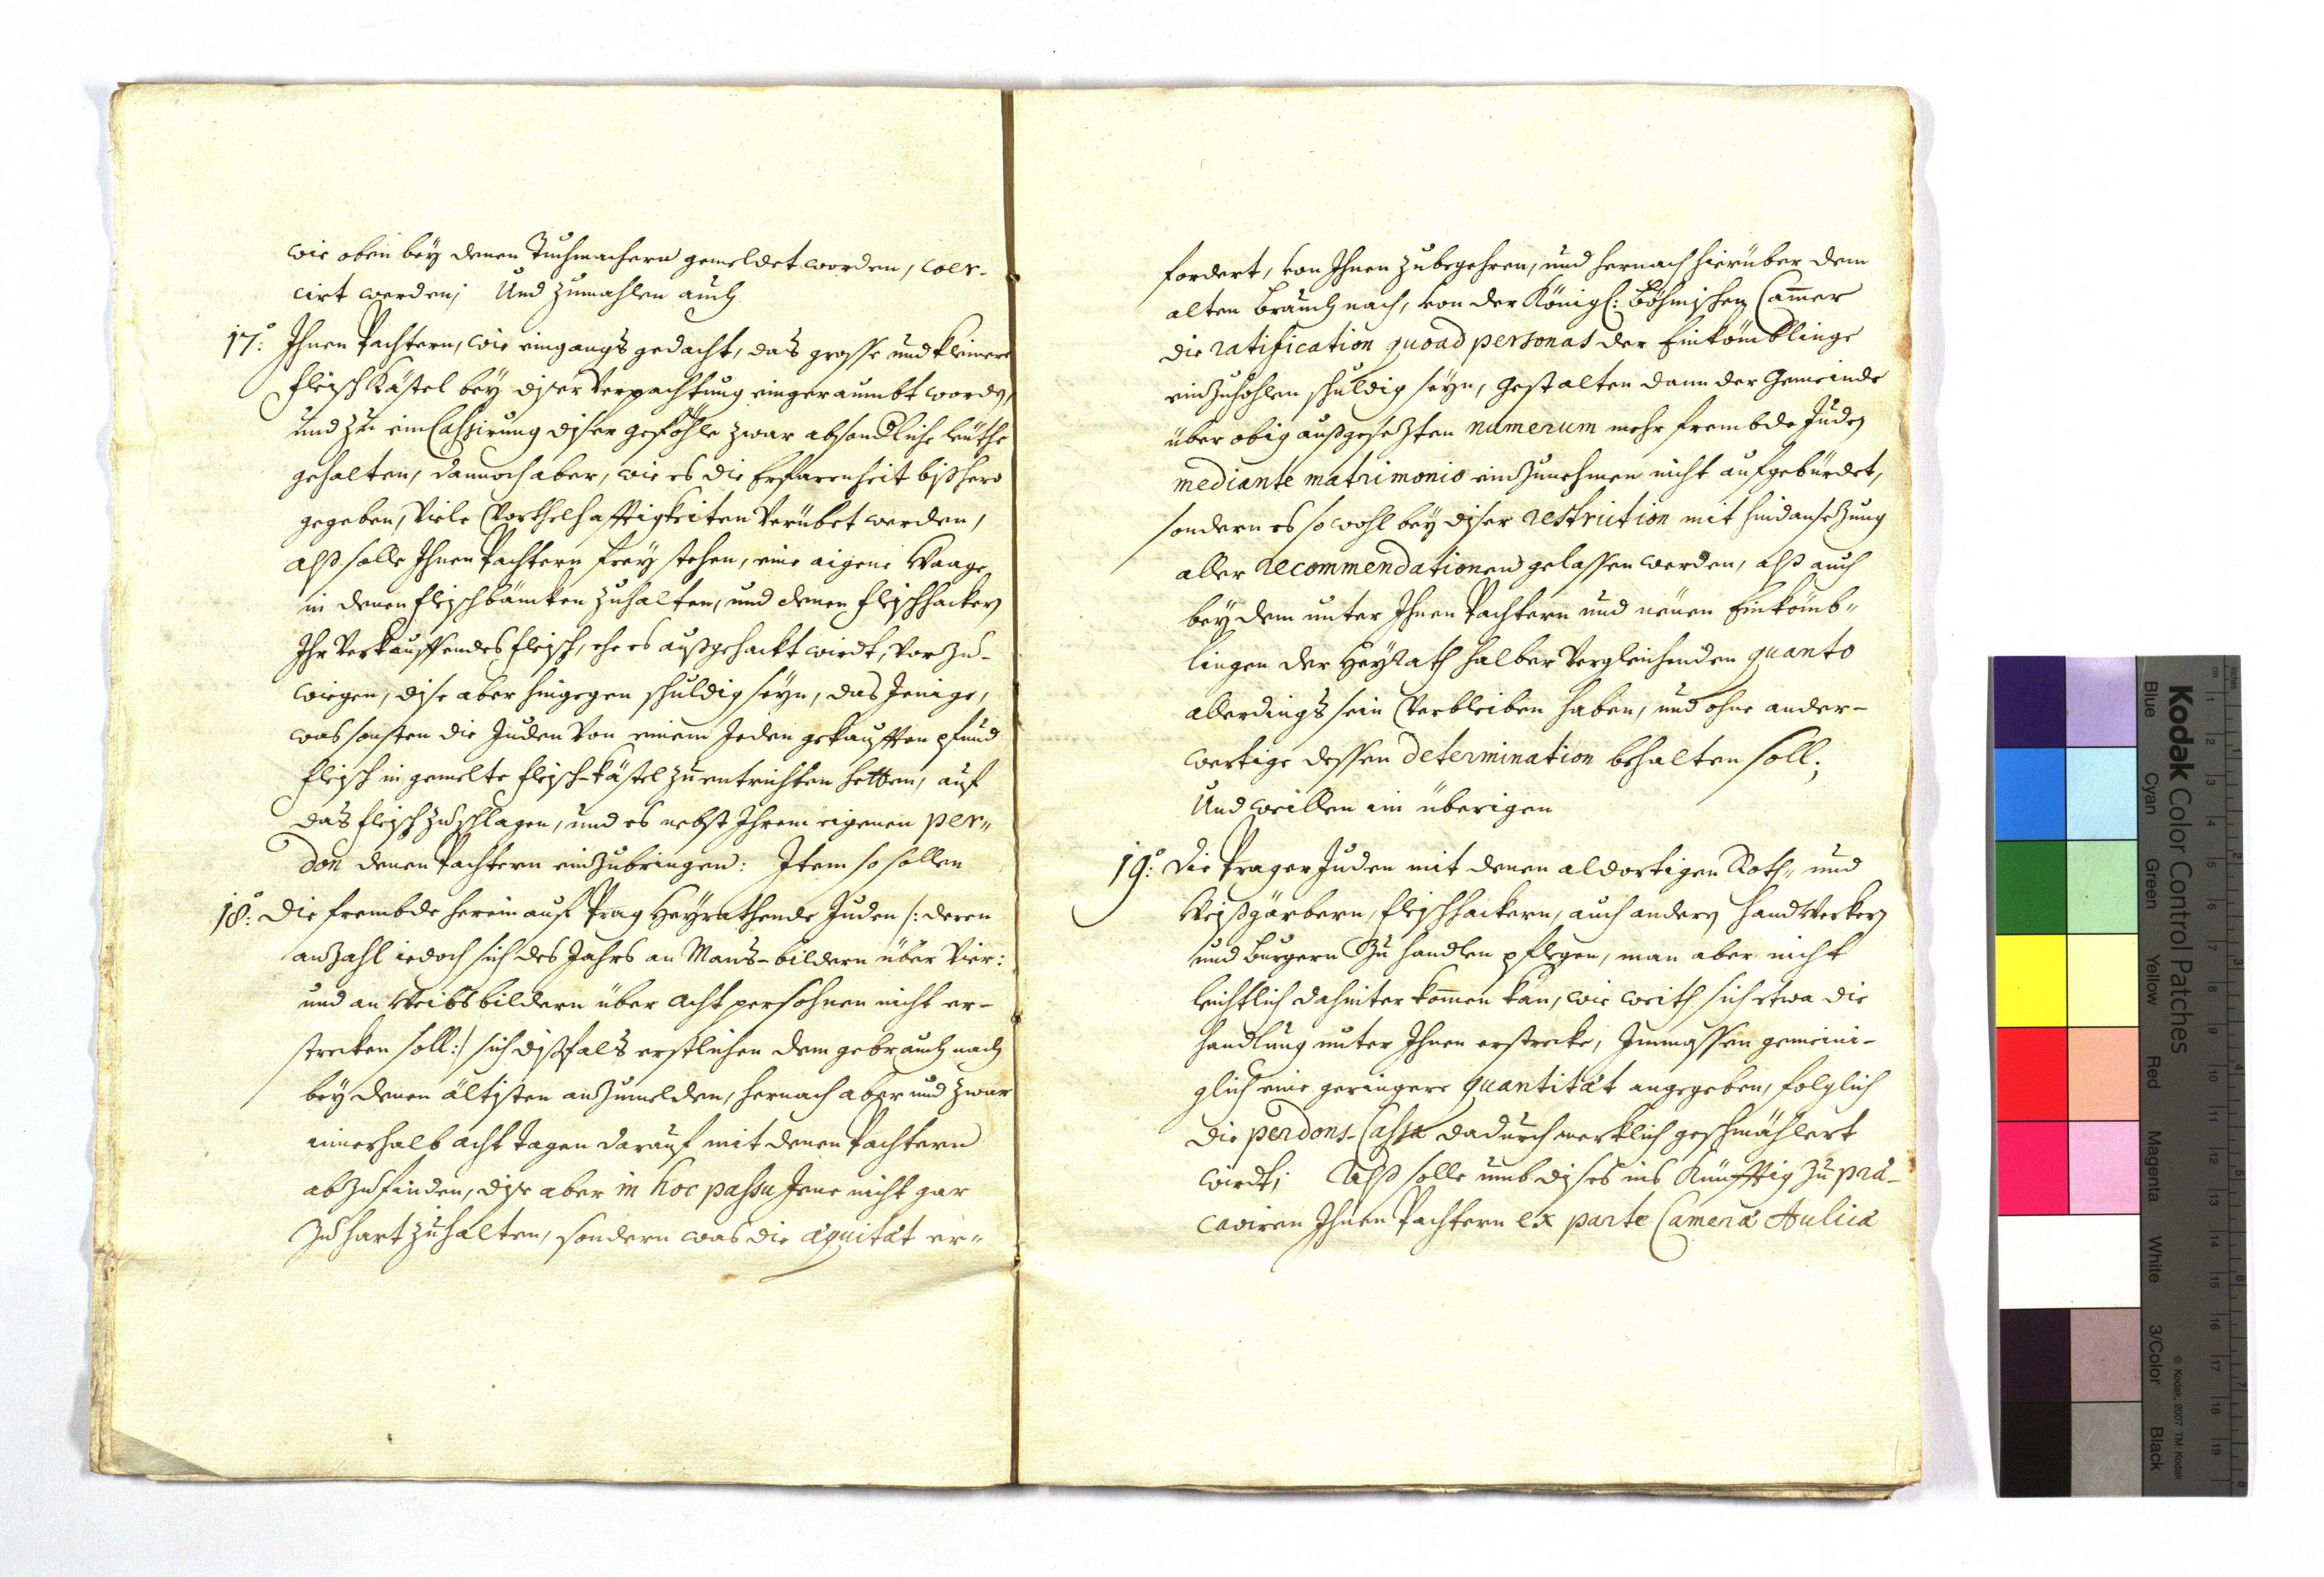 wie oben bey denen Tuchmachern gemeldet worden, coer-
cirt werden; Und zumahlen auch
17:o Ihnen Pachtern, wie eingangs gedacht, das grosse und kleinere
fleisch Kästel bey diser Verpachtung eingeraumbt worden,
und zu ein Cassirung diser geföhle zwar absondliche leüthe
gehalten, dannoch aber, wie es die Erfarenheit bißhero
gegeben, Viele Vortheilhafftigkeiten Verübet werden,
alß solle Ihnen Pachtern frey stehen, eine aigene Waage,
in denen fleischbäncken zuhalten, und denen fleischhackern
Ihr Verkauffendes fleisch, ehe es außgehackt wirdt, vor zu-
wiegen, dise aber hingegen schuldig seyn, das Jenige,
was sonsten die Juden Von einem Jeden gekaufften pfund
fleisch in gemelte fleisch-kästel zu entrichten hetten, auf
das fleisch zuschlagen, und es nebst Ihrem eigenen per-
don denen Pachtern einzubringen: Item so sollen
18:o die frembde herein auf Prag Heyrathende Juden /: deren
anzahl iedoch sich des Jahrs an Mans-bildern über Vier:
und an Weibsbildern über acht persohnen nicht er-
strecken soll:/ sich dißfals erstlichen dem gebrauch nach
bey denen ältisten anzumelden, hernach aber und zwar
innerhalb acht tagen darauf mit denen Pachtern
abzufinden, dise aber in hoc passu Jene nicht gar
zu hart zuhalten, sondern was die æquität er-
fordert, von Ihnen zubegehren, und hernach hierüber dem
alten brauch nach, von der Königl: Böhmischen Cammer
die ratification quoad personas der Einkömblinge
einzuhohlen schuldig seyn, gestalten dann der Gemeinde
über obig außgesetzten numerum mehr frembde Juden
mediante matrimonio einzunehmen nicht aufgebürdet,
sondern es so wohl bey diser restriction mit hindansetzung
aller recommendationen gelassen werden, alß auch
bey dem unter Ihnen Pachtern und neüen Einkömb-
lingen der Heyrath halber Vergleichenden quanto
allerdings sein Verbleiben haben, und ohne ander-
wertige dessen determination behalten soll;
Und weillen im überigen
19:o die Prager Juden mit denen aldortigen Roth- und
Weißgärbern, fleischhackern, auch andern handwerkern
und burgern zu handlen pflegen, man aber nicht
leichtlich dahinter kommen kan, wie weith sich etwa die
handlung unter Ihnen erstrecke, Immassen gemeini-
glich eine geringere quantität angegeben, folglich
die perdons-Cassa dadurch merklich geschmählert
wirdt; Alß solle umb dises ins Künfftig zu præ-
caviren Ihnen Pachtern ex parte Cameræ Aulicæ
Kodak Color Control Patches
Blue Cyan Green Yellow Red Magenta White 3/Color Black
© Kodak, 2007 TM: Kodak
inches 1 2 3 4 5 6 7 8
cm 1 2 3 4 5 6 7 8 9 10 11 12 13 14 15 16 17 18 19